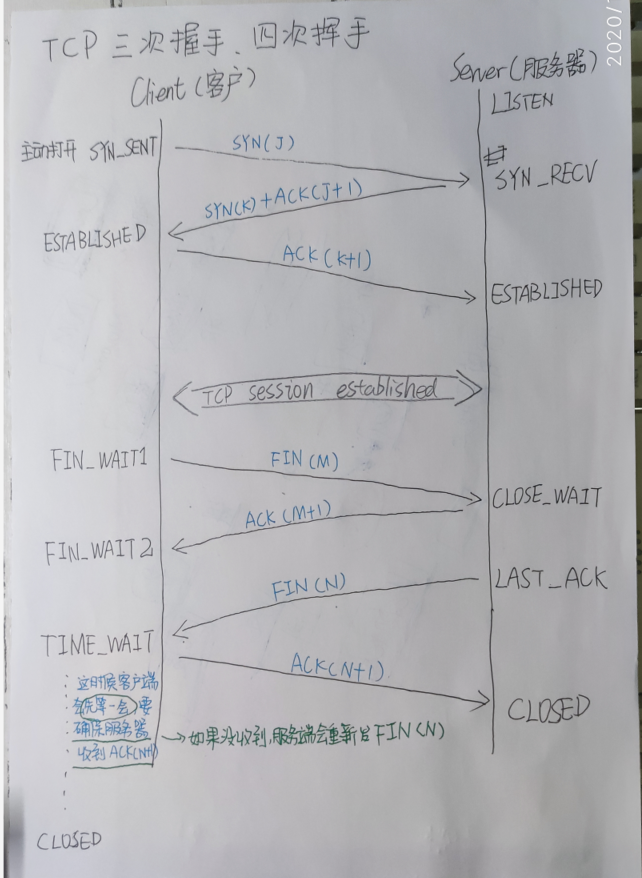 TCP 三次握手、四次挥手
2020/
Client (客户)
Server (服务器)
LISTEN
主动打开 SYN_SENT
SYN(J)
SYN_RECV
SYN(K)+ACK(J+1)
ESTABLISHED
ACK(K+1)
ESTABLISHED
TCP session established
FIN_WAIT1
FIN(M)
CLOSE_WAIT
ACK(M+1)
FIN_WAIT2
FIN(N)
LAST_ACK
TIME_WAIT
ACK(N+1)
CLOSED
这时候客户端
会先等一会,要
确保服务器
收到ACK(N+1)
→如果没收到,服务端会重新发FIN(N)
CLOSED